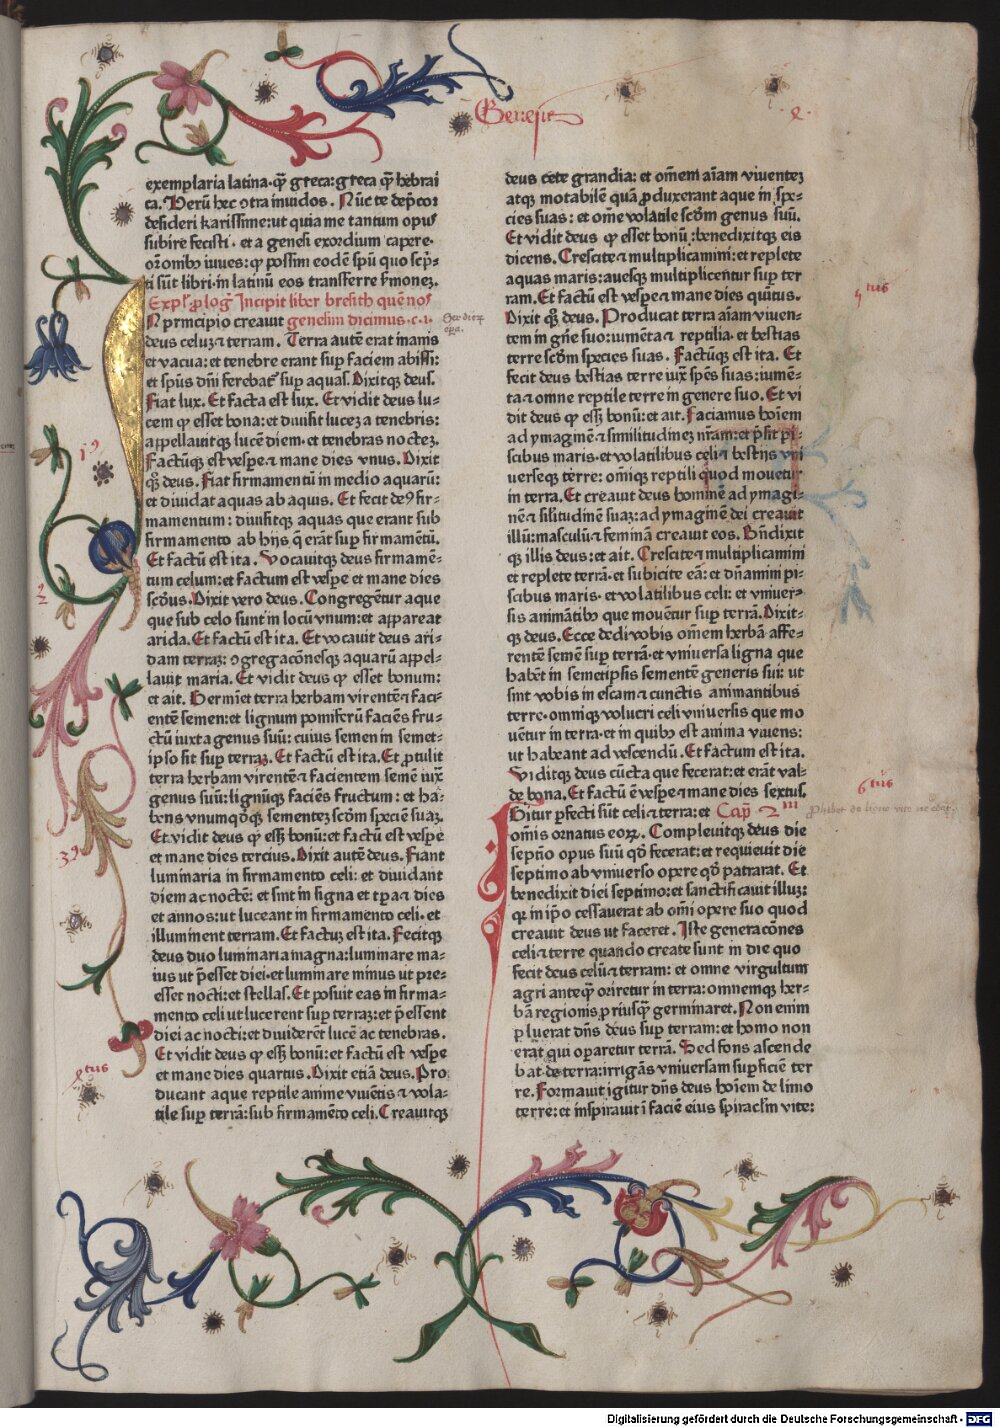 Genesis
2.
exemplaria latina·qꝫ greca:greca qꝫ hebrai
ca. Verū hec ↄtra inuidos. Nūc te dep̄cor
desideri karissime:ut quia me tantum opus
subire fecisti· et a genesi exordium capere·
or̄onibꝰ iuues:qꝫ possim eodē spū quo scp̄-
ti sūt libri·in latinū eos transferre sermonez.
Expl' ꝓlog' Incipit liber bresith quē nos
N principio creauit genesim dicimus·c·1·
deus celuz⁊ terram. Terra autē erat inanis
et vacua:et tenebre erant suꝑ faciem abissi:
et spūs dn̄i ferebat' suꝑ aquas. Dixitqꝫ deus.
Fiat lux. Et facta est lux. Et vidit deus lu-
cem qꝫ esset bona:et diuisit lucez a tenebris:
appellauitqꝫ lucē diem·et tenebras noctez.
Factūqꝫ est vesꝑe⁊ mane dies vnus. Dixit
1ꝰ
qꝫ deus. Fiat firmamentū in medio aquarū:
et diuidat aquas ab aquis. Et fecit deꝰ fir-
mamentum: diuisitqꝫ aquas que erant sub
firmamento ab hijs q̄ erāt suꝑ firmamētū.
Et factū est ita. Vocauitqꝫ deus firmamē-
tum celum:et factum est vesꝑe et mane dies
2
scdus. Dixit vero deus. Congregētur aque
que sub celo sunt in locū vnum:et appareat
arida. Et factū est ita. Et vocauit deus ari-
dam terraz: ↄgregacōnesqꝫ aquarū appel-
lauit maria. Et vidit deus qꝫ esset bonum:
et ait. Germinet terra herbam virentē⁊ faci-
entē semen:et lignum pomiferū faciēs fru-
ctū iuxta genus suū: cuius semen in semet-
ipso sit suꝑ terraz. Et factū est ita. Et ꝓtulit
terra herbam virentē⁊ facientem semē iux̄
genus suū:lignūqꝫ faciēs fructum: et ha-
bens vnumqdqꝫ sementez scdm speciē suaz.
Et vidit deus qꝫ essꝫ bonū:et factū est vesꝑe
3ꝰ
et mane dies tercius. Dixit autē deus. Fiant
luminaria in firmamento celi: et diuidant
diem ac noctē: et sint in signa et tꝑa ⁊ dies
et annos:ut luceant in firmamento celi·et
illuminent terram. Et factuz est ita. Fecitqꝫ
deus duo luminaria magna:luminare ma-
ius ut p̄esset diei·et luminare minus ut pre-
esset nocti:et stellas. Et posuit eas in firma-
mento celi ut lucerent suꝑ terraz:et p̄essent
diei ac nocti:et diuiderēt lucē ac tenebras.
Et vidit deus qꝫ essꝫ bonū:et factū est vesꝑe
et mane dies quartus. Dixit etiā deus. Pro
ducant aque reptile anime viuētis ⁊ vola-
tile suꝑ terrā:sub firmamēto celi. Creauitqꝫ
deus cete grandia: et om̄em aīam viuentez
atqꝫ motabilē quā ꝓduxerant aque in spe-
cies suas: et om̄e volatile scdm genus suū.
Et vidit deus qꝫ esset bonū:benedixitqꝫ eis
dicens. Crescite⁊ multiplicamini:et replete
aquas maris:auesqꝫ multiplicentur suꝑ ter
ram. Et factū est vesꝑe⁊ mane dies quītus.
5tus
Dixit qꝫ deus. Producat terra aīam viuen-
tem in gn̄e suo:iumēta⁊ reptilia·et bestias
terre scdm species suas. Factūqꝫ est ita. Et
fecit deus bestias terre iux̄ spēs suas:iumē-
ta⁊ omne reptile terre in genere suo. Et vi
dit deus qꝫ essꝫ bonū:et ait. Faciamus hoīem
ad ymaginē⁊ similitudinez nr̄am:et p̄sit pi-
scibus maris·et volatilibus celi⁊ bestijs vni
uerseqꝫ terre: omīqꝫ reptili quod mouetur
in terra. Et creauit deus hominē ad ymagi-
nē⁊ silitudinē suaz:ad ymaginē dei creauit
illū:masculū⁊ feminā creauit eos. Bn̄dixit
qꝫ illis deus:et ait. Crescite⁊ multiplicamini
et replete terrā·et subicite eā:et dn̄amini pi-
scibus maris·et volatilibus celi: et vniuer-
sis animātibꝰ que mouētur suꝑ terrā. Dixit-
qꝫ deus. Ecce dedi vobis om̄em herbā affe-
rentē semē suꝑ terrā·et vniuersa ligna que
habēt in semetipsis sementē generis sui: ut
sint vobis in escam⁊ cunctis animantibus
terre·omniqꝫ volucri celi vniuersis que mo
uētur in terra·et in quibꝰ est anima viuens:
ut habeant ad vescendū. Et factum est ita.
Viditqꝫ deus cūcta que fecerat:et erāt val-
de bona. Et factū ē vesꝑe⁊ mane dies sextus.
6tus
Igitur ꝑfecti sūt celi⁊ terra:et Capm 2m
om̄is ornatus eorꝝ. Compleuitqꝫ deus die
septīo opus suū qd fecerat:et requieuit die
septimo ab vniuerso opere qd patrarat. Et
benedixit diei septimo:et sanctificauit illuz:
qꝛ in ip̄o cessauerat ab om̄i opere suo quod
creauit deus ut faceret. Iste generacōnes
celi⁊ terre quando create sunt in die quo
fecit deus celū⁊ terram: et omne virgultum
agri anteqꝫ oriretur in terra:omnemqꝫ her-
bā regionis ꝓriusqꝫ germinaret. Non enim
pluerat dn̄s deus suꝑ terram:et homo non
erat qui oꝑaretur terrā. Sed fons ascende
bat de terra:irrigās vniuersam suꝑficiē ter
re. Formauit igitur dn̄s deus hoīem de limo
terre:et inspirauit ī faciē eius spiraclm vite:
Digitalisierung gefördert durch die Deutsche Forschungsgemeinschaft - DFG